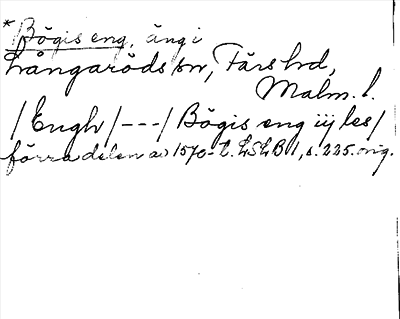 *Bögis eng, äng i
Långaröds sn, Färs hd,
Malm. l.
/Engh/---/Bögis eng iij les/
förra delen av 1570-t. LSLB 1, s. 225. orig.